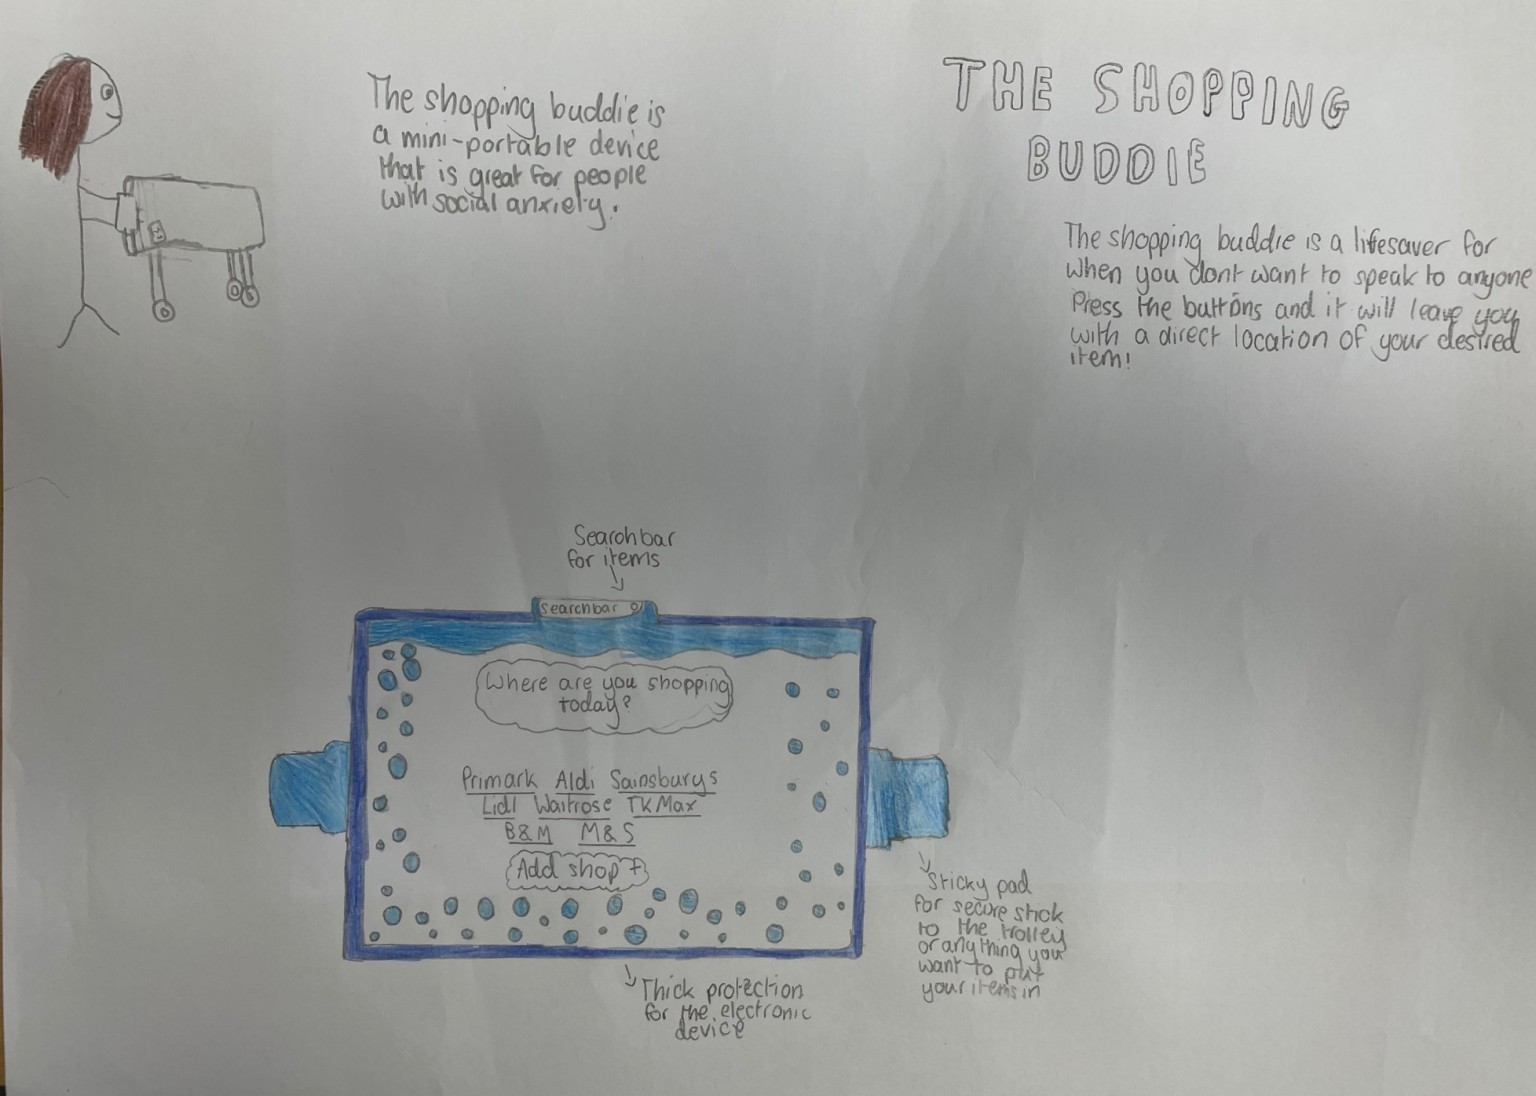 THE SHOPPING
BUDDIE
The shopping buddie is
a mini-portable device
that is great for people
with social anxiety.
The shopping buddie is a lifesaver for
when you dont want to speak to anyone
Press the buttons and it will leave you
with a direct location of your desired
item!
Searchbar
for items
searchbar
Where are you shopping
today?
Primark Aldi Sainsburys
Lidl Waitrose TK Max
B&M M&S
Add shop +
Sticky pad
for secure stick
to the trolley
or anything you
want to put
your items in
Thick protection
for the electronic
device